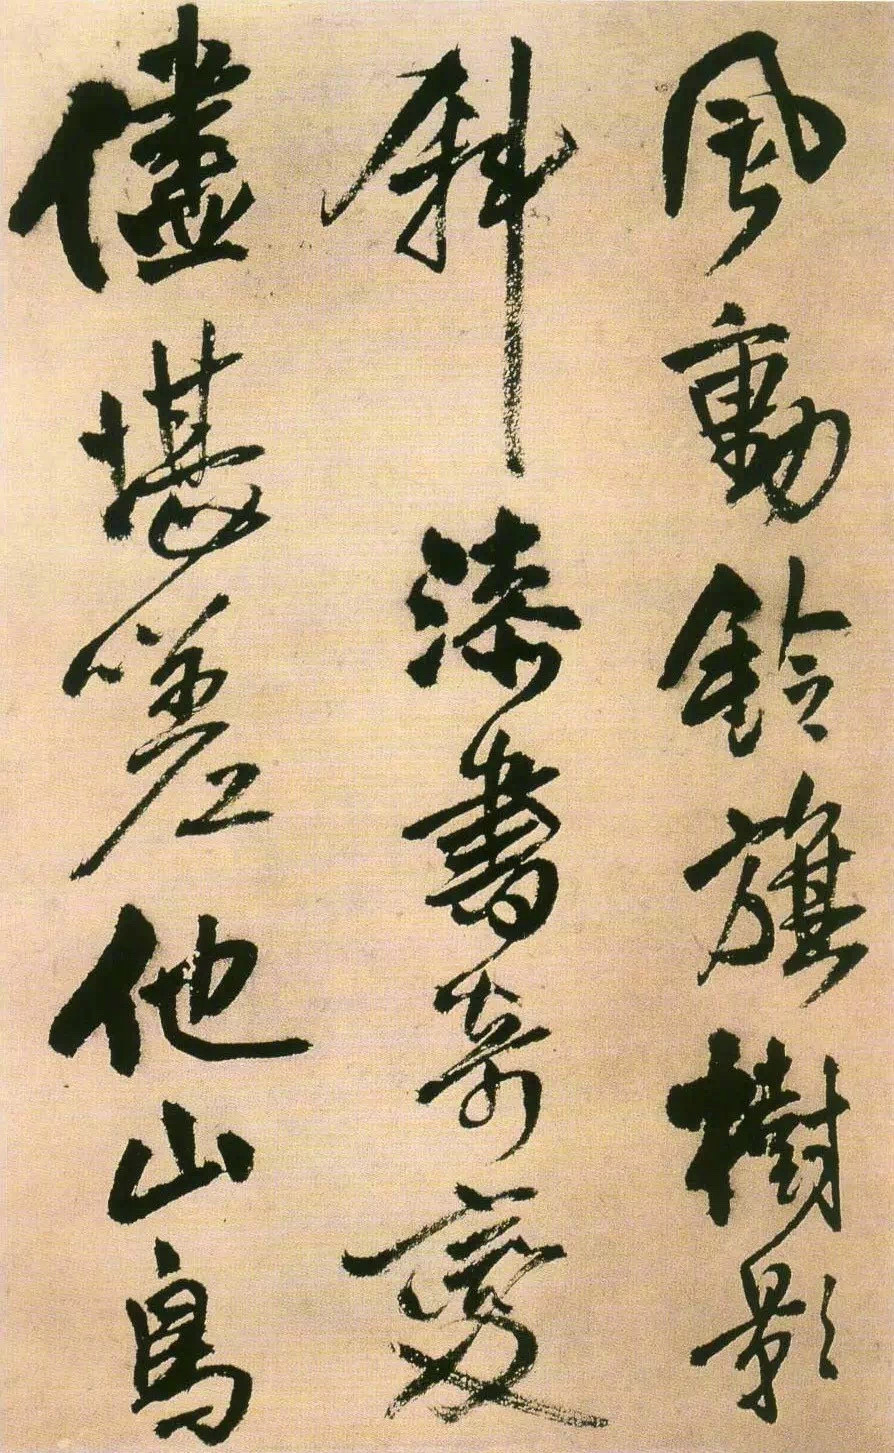 風動鈴旗樹影
斜漆書奇变
儘堪嗟他山鳥